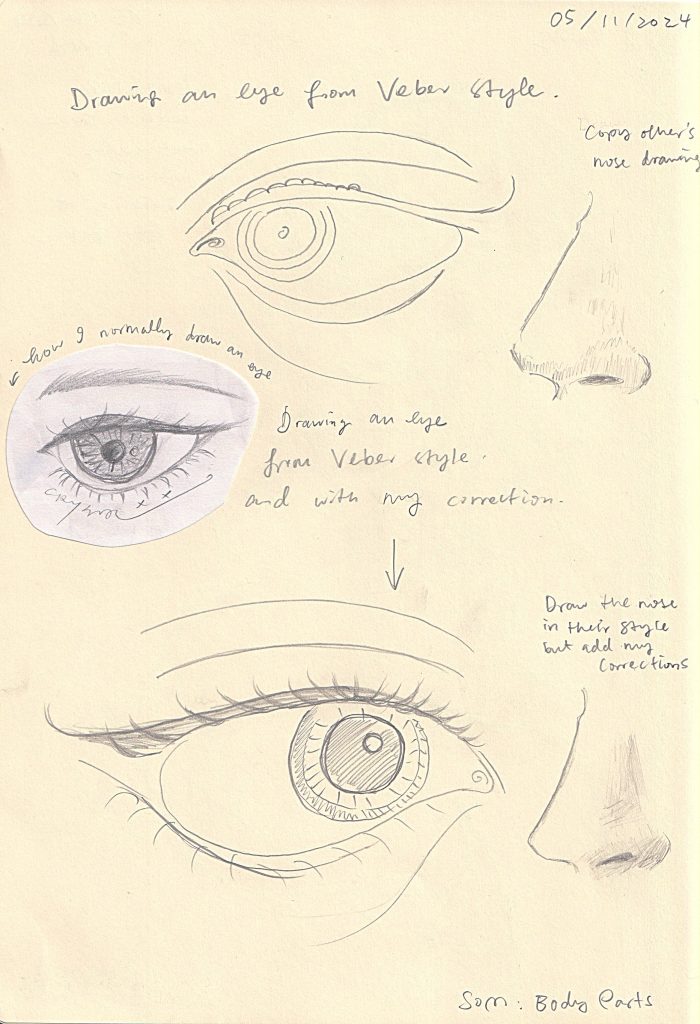 05/11/2024
Drawing an eye from Veber style.
Copy other's
nose drawing
how I normally draw an eye
Drawing an eye
from Veber style.
and with my correction.
Draw the nose
in their style
but add my
corrections
Som: Body Parts